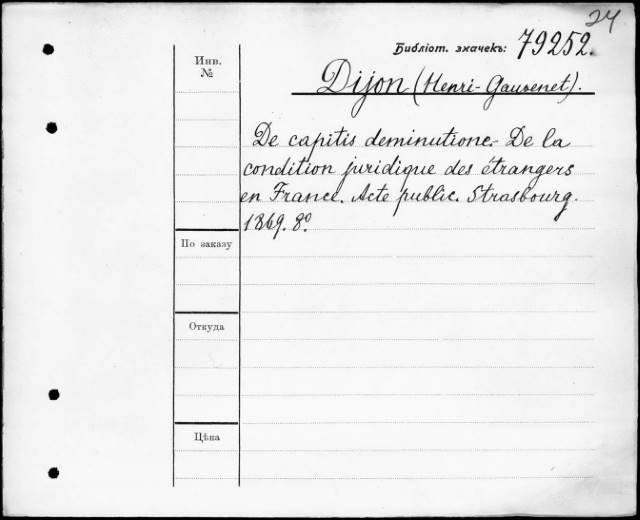 24
Библіот. значекъ: 79252.
Инв.
№
Dijon (Henri-Gauvenet).
De capitis deminutione.- De la
condition juridique des étrangers
en France. Acte public. Strasbourg.
1869. 8º.
По заказу
Откуда
Цѣна